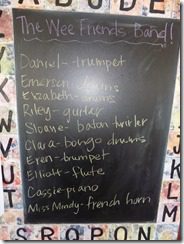 A B C D E
The Wee Friends Band!!
Daniel--trumpet
Emerson-drums
Elizabeth-drums
Riley-guitar
Sloane-baton twirler
Clara-bongo drums
Eren-trumpet
Elliott-flute
Cassie-piano
Miss Mindy-french horn
S R Q P O N